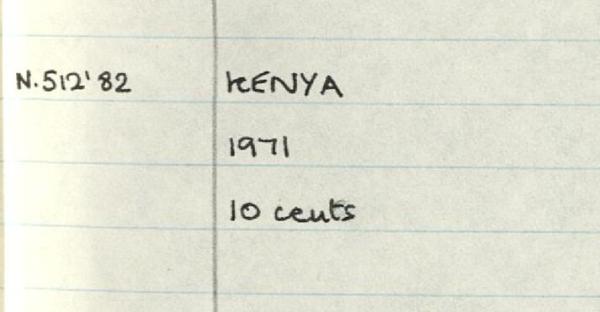 N.512'82 KENYA
1971
10 cents